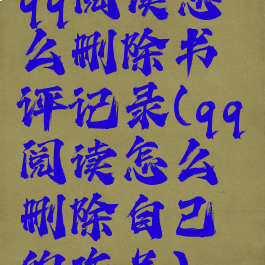 qq阅读怎
么删除书
评记录(qq
阅读怎么
删除自己